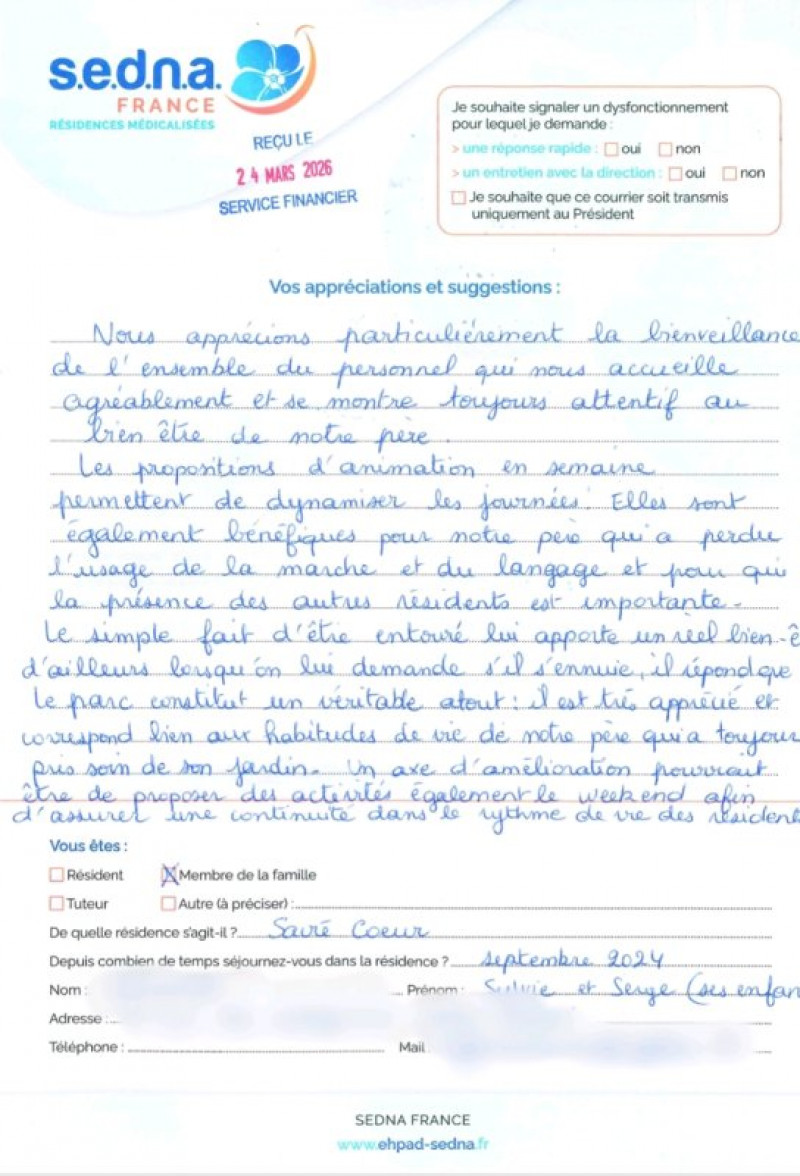 s.e.d.n.a.
FRANCE
RÉSIDENCES MÉDICALISÉES
REÇU LE
24 MARS 2026
SERVICE FINANCIER
Je souhaite signaler un dysfonctionnement
pour lequel je demande :
> une réponse rapide : oui non
> un entretien avec la direction : oui non
Je souhaite que ce courrier soit transmis
uniquement au Président
Vos appréciations et suggestions :
Nous apprécions particulièrement la bienveillance
de l'ensemble du personnel qui nous accueille
agréablement et se montre toujours attentif au
bien être de notre père.
Les propositions d'animation en semaine
permettent de dynamiser les journées. Elles sont
également bénéfiques pour notre père qui a perdu
l'usage de la marche et du langage et pour qui
la présence des autres résidents est importante.
Le simple fait d'être entouré lui apporte un réel bien-ê
d'ailleurs lorsqu'on lui demande s'il s'ennuie, il répond que
Le parc constitut un véritable atout : il est très apprécié et
correspond bien aux habitudes de vie de notre père qui a toujour
pris soin de son jardin. Un axe d'amélioration pourrait
être de proposer des activités également le weekend afin
d'assurer une continuité dans le rythme de vie des résident
Vous êtes :
Résident X Membre de la famille
Tuteur Autre (à préciser) :
De quelle résidence s'agit-il ? Sacré Coeur
Depuis combien de temps séjournez-vous dans la résidence ? septembre 2024
Nom : Prénom : Sylvie et Serge (ses enfan
Adresse :
Téléphone : Mail
SEDNA FRANCE
www.ehpad-sedna.fr